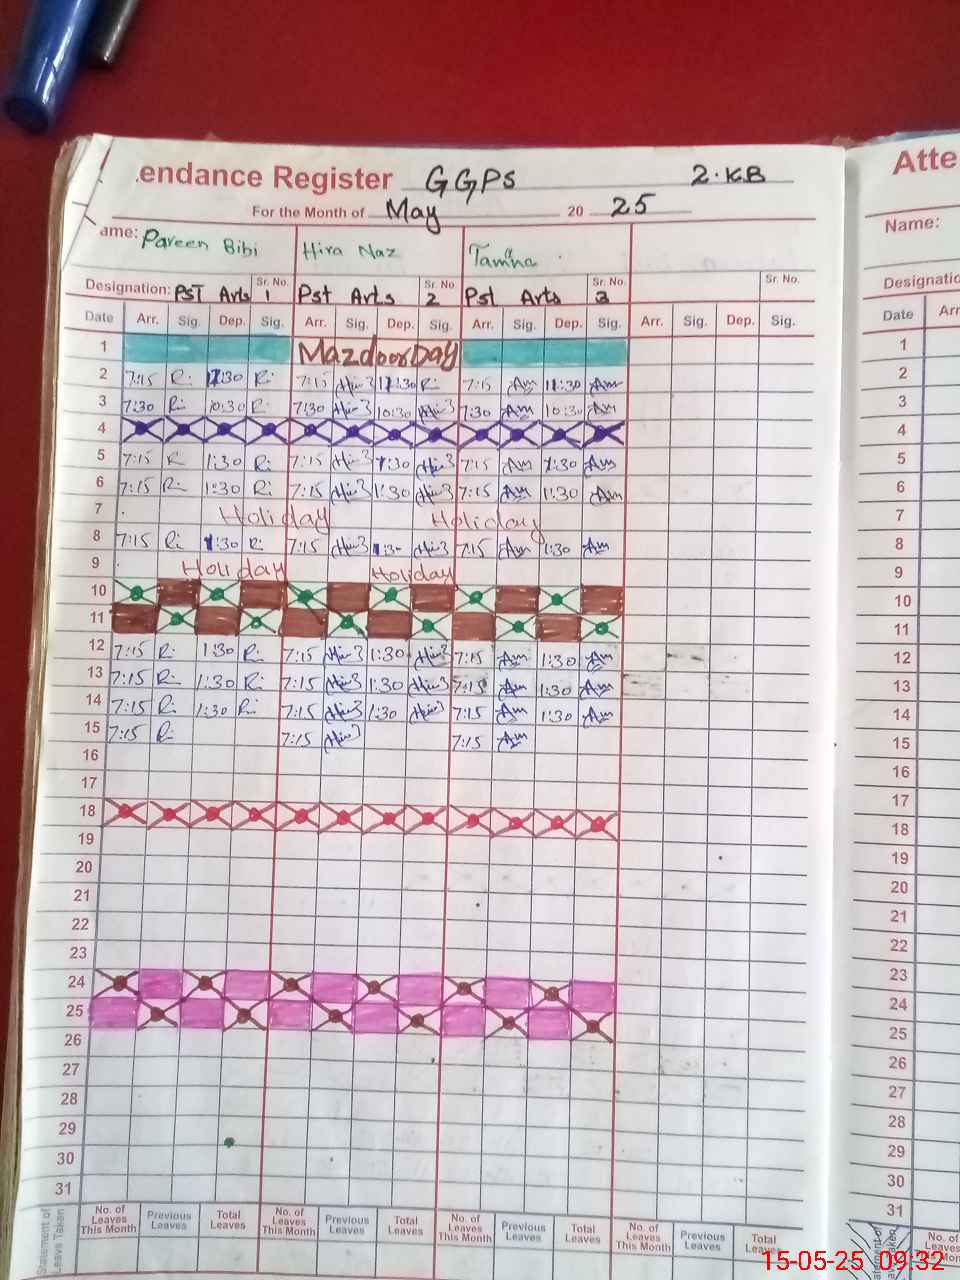 endance Register GGPS 2.KB
For the Month of May 20 25
ame: Parveen Bibi Hira Naz Tamna
Designation: PST Arts Sr. No. 1 Pst Arts Sr. No. 2 Pst Arts Sr. No. 3 Sr. No.
Date Arr. Sig. Dep. Sig. Arr. Sig. Dep. Sig. Arr. Sig. Dep. Sig. Arr. Sig. Dep. Sig.
1 Mazdoor Day
2 7:15 11:30 7:15 11:30 7:15 11:30
3 7:30 10:30 7:30 10:30 7:30 10:30
4
5 7:15 1:30 7:15 1:30 7:15 1:30
6 7:15 1:30 7:15 1:30 7:15 1:30
7 Holiday Holiday
8 7:15 1:30 7:15 1:3- 7:15 1:30
9 Holiday Holiday
10
11
12 7:15 1:30 7:15 1:30 7:15 1:30
13 7:15 1:30 7:15 1:30 7:15 1:30
14 7:15 1:30 7:15 1:30 7:15 1:30
15 7:15 7:15 7:15
16
17
18
19
20
21
22
23
24
25
26
27
28
29
30
31
Statement of Leave Taken No. of Leaves This Month Previous Leaves Total Leaves No. of Leaves This Month Previous Leaves Total Leaves No. of Leaves This Month Previous Leaves Total Leaves No. of Leaves This Month Previous Leaves Total Leaves
Atte
Name:
Designatio
Date Arr
1
2
3
4
5
6
7
8
9
10
11
12
13
14
15
16
17
18
19
20
21
22
23
24
25
26
27
28
29
30
31
No. of
Leaves
15-05-25 09:32